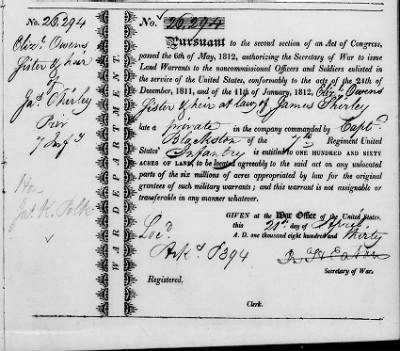 No. 26,294
Eliz. Owens
Sister & heir
of
Jas. Shirley
Priv
7 Inf.
Hon
Jas. K. Polk
WAR DEPARTMENT.
No. 26,294
Pursuant to the second section of an Act of Congress,
passed the 6th of May, 1812, authorizing the Secretary of War to issue
Land Warrants to the noncommissioned Officers and Soldiers enlisted
in the service of the United States, conformably to the acts of the 24th of
December, 1811, and of the 11th of January, 1812, Eliz. Owens
Sister & heir at law of James Shirley
late a private in the company commanded by Capt.
of the 7th Regiment United
States' Infantry is entitled to ONE HUNDRED AND SIXTY
ACRES OF LAND, to be located agreeably to the said act on any unlocated
parts of the six millions of acres appropriated by law for the original
grantees of such military warrants; and this warrant is not assignable or
transferable in any manner whatever.
GIVEN at the War Office of the United States,
this day of April
A. D. one thousand eight hundred and thirty
J H Eaton
Secretary of War.
Loc'd
Ark. 1394
Registered.
Clerk.